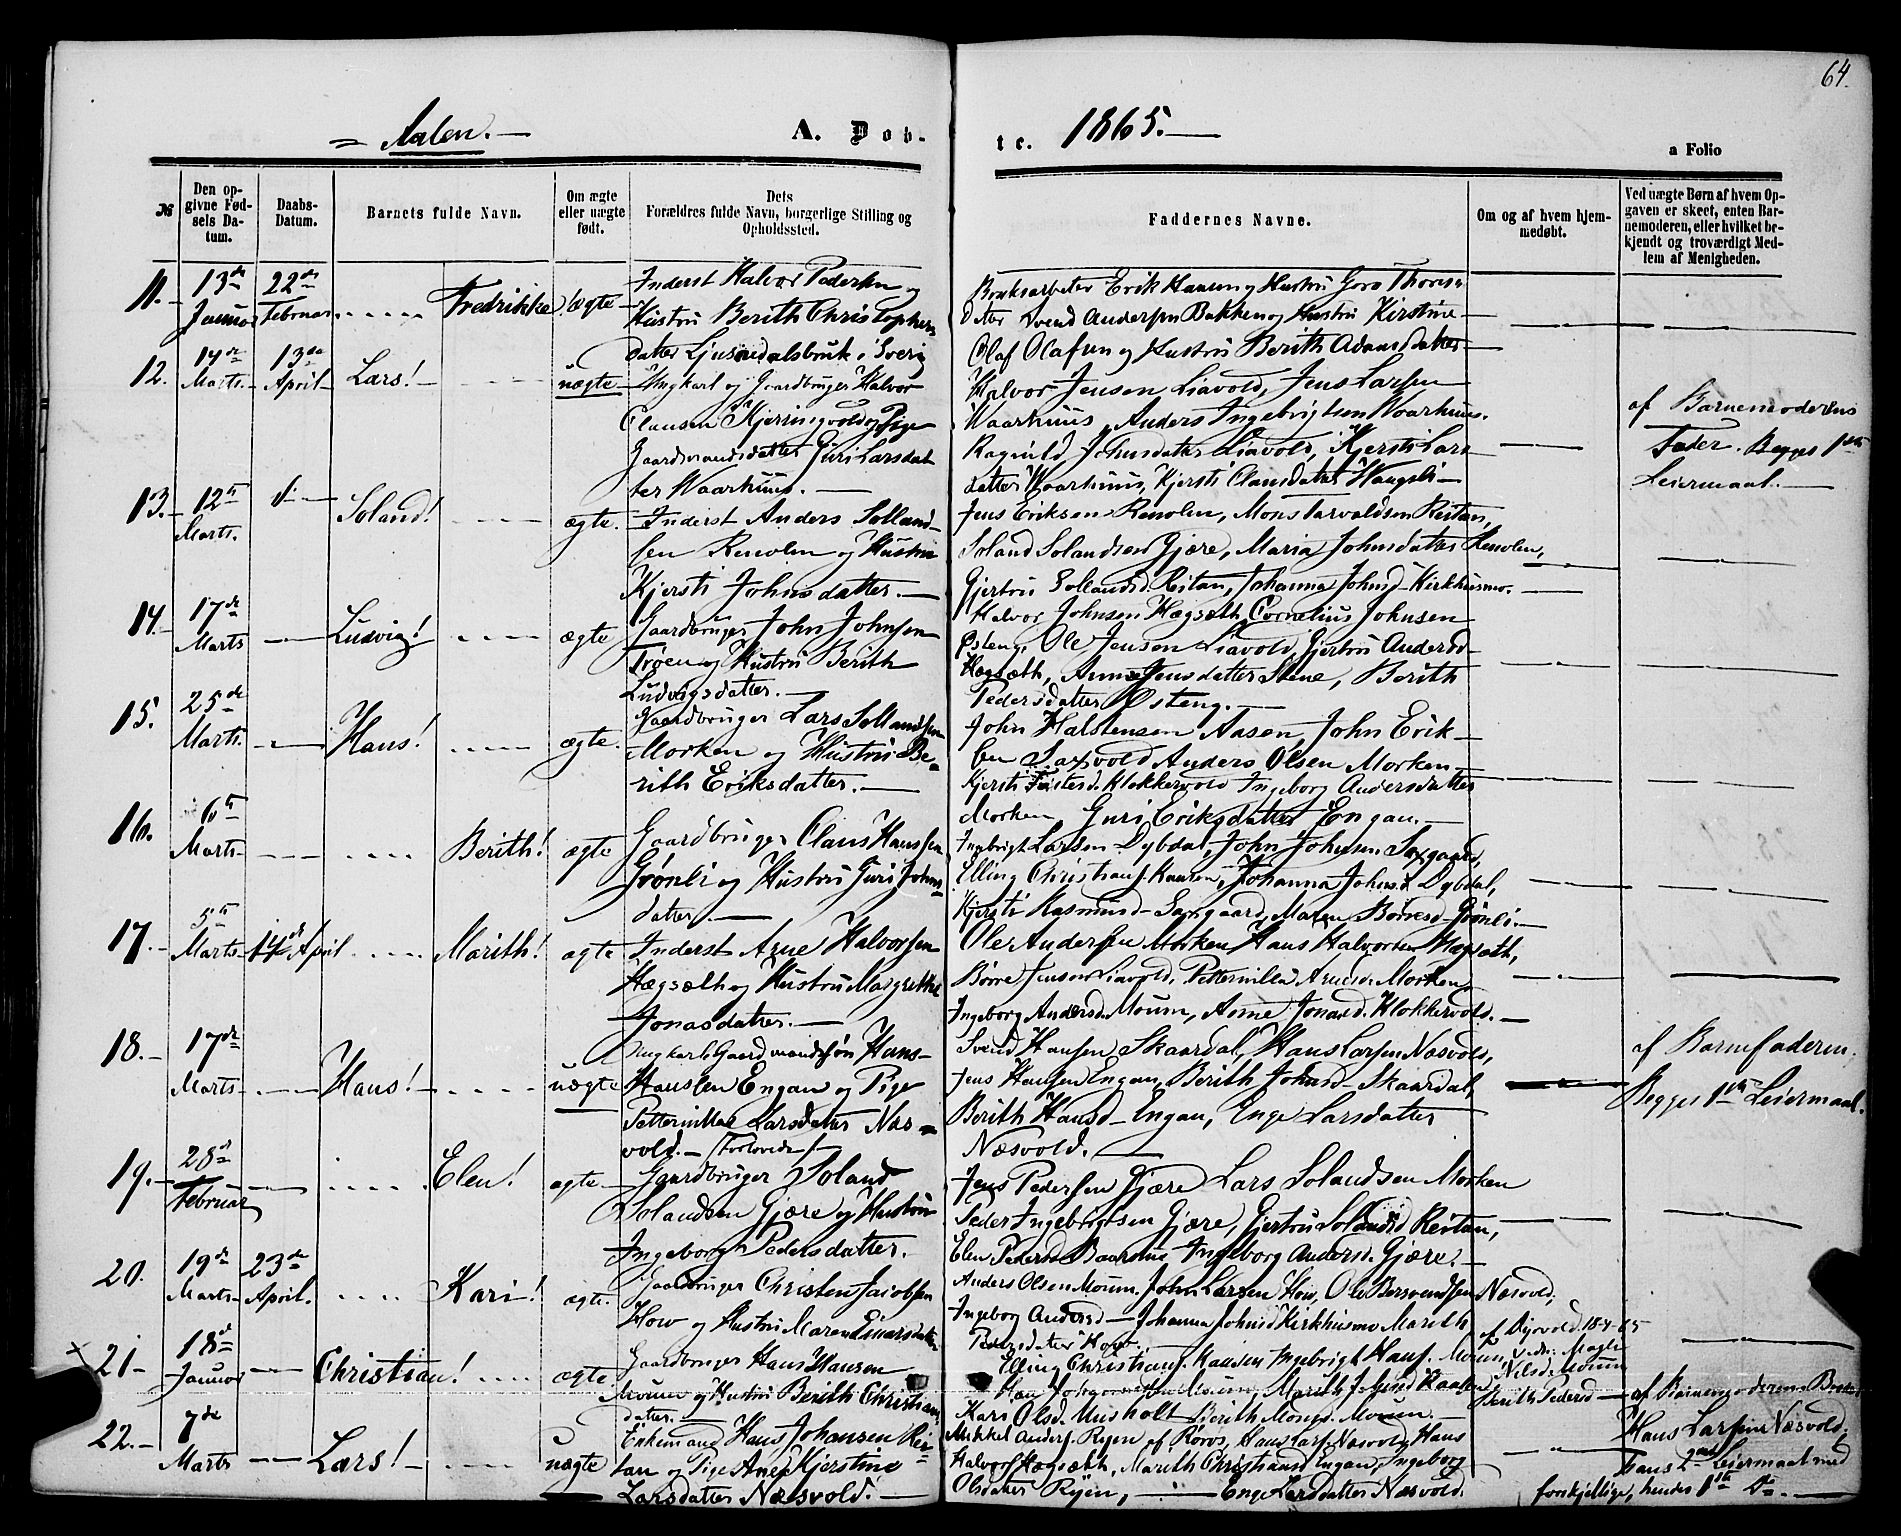 64.
Aalen.
A. Dob-
te. 1865.
a Folio
№
Den op-
givne Fød-
sels Da-
tum.
Daabs-
Datum.
Barnets fulde Navn.
Om ægte
eller uægte
født.
Dets
Forældres fulde Navn, borgerlige Stilling og
Opholdssted.
Faddernes Navne.
Om og af hvem hjem-
medøbt.
Ved uægte Børn af hvem Op-
gaven er skeet, enten Bar-
nemoderen, eller hvilket be-
kjendt og troværdigt Med-
lem af Menigheden.
11. 13de Januar 22de Februar Fredrikke! ægte
Inderst Halvor Pedersen og
Hustru Berith Christophers
datter Ljusnedalsbruk i Sverig
Bruksarbeider Erik Hansen og Hustru Goro Thores
datter Svend Andersen Bakken og Hustru Kirstine
Olaf Olafsen og Hustru Berith Adamsdatter
12. 14de Marts 13de April Lars! uægte
Ungkarl og Gaardbruger Halvor
Clausen Kjerringvold og Pige
Gaardmandsdatter Guri Larsdat
ter Waarhuus.
Halvor Jensen Liavold, Jens Larsen
Waarhuus, Anders Ingebrigtsen Waarhuus.
Ragnild Johnsdatter Liavold, Kjersti Lars
datter Waarhuus, Kjersti Clausdatter Haugli
af Barnemoderens
Fader. Begges 1ste
Leiermaal.
13. 12te Marts. Soland! ægte.
Inderst Anders Solland-
sen Renolen og Hustru
Kjersti Johnsdatter.
Jens Eriksen Renolen, Mons Tarvaldsen Reitan,
Soland Solandsen Gjære, Maria Johnsdatter Renolen,
Gjertru Sollandsd. Reitan, Johanna Johnsd. Kirkhusmo.
14. 17de Marts Ludvig! ægte
Gaardbruger John Johnsen
Trøen og Hustru Berith
Ludvigsdatter.
Halvor Johnsen Hægseth, Cornelius Johnsen
Østeng, Ole Jensen Liavold, Gjertru Andersd
Hægsæth, Anne Jensdatter Stene, Berith
Pedersdatter Østeng.
15. 25de Marts. Hans! ægte.
Gaardbruger Lars Sollandsen
Morken og Hustru Be-
rith Eriksdatter.
John Halstensen Aasen, John Erik-
sen Saxvold Anders Olsen Morken
Kjersti Klokkervold Ingeborg Andersdatter
Morken, Guri Eriksdatter Engan.
16. 6te Marts Berith! ægte
Gaardbruger Claus Hansen
Grønli og Hustru Guri Johns
datter.
Ingebrigt Larsen Dybdal, John Johnsen Saxgaard,
Elling Christians. Kaasen, Johanna Johnsd. Dybdal,
Kjersti Rasmusd. Saxgaard, Maren Børresd. Grønli.
17. 5te Marts 14de April Marith! ægte
Inderst Arne Halvorsen
Hægsæth og Hustru Margrethe
Jonasdatter.
Ole Andersen Morken Hans Halvorsen Hægsæth,
Børre Jensen Liavold, Petternilla Arnesd. Morken,
Ingeborg Andersd. Moum, Anne Jonasd. Klokkervold.
18. 17de Marts Hans! uægte
Ungkarl Gaardmandssøn Hans
Hansen Engan og Pige
Petternille Larsdatter Næs-
vold. (Forlovede)
Svend Hansen Skaardal, Hans Larsen Næsvold,
Jens Hansen Engan, Berith Johnsd. Skaardal
Berith Hansd. Engan, Enge Larsdatter
Næsvold.
af Barnefaderen.
Begges 1ste Leiermaal.
19. 28de Februar Elen! ægte
Gaardbruger Soland
Solandsen Gjære og Hustru
Ingeborg Pedersdatter.
Jens Pedersen Gjære Lars Solandsen Morken
Peder Ingebrigtsen Gjære, Gjertru Solandsd Reitan,
Elen Petersd Ingeborg Andersd. Gjære.
20. 19de Marts 23de April. Kari! ægte.
Gaardbruger Christen Jacobsen
How og Hustru Maren Einarsdatter
Anders Olsen Moum, John Larsen How, Ole Bersvendsen Næsvold,
Ingeborg Andersd. Johanna Johnsd Kirkhusmo Marith
Pedersdatter How.
21 18de Januar Christian! ægte
Gaardbruger Hans Hansen
Moum og Hustru Berith Christians
datter.
Elling Christians. Kaasen Ingebrigt Hans. Moum,
Moum, Marith Johnsd Kaasen Berith Pedersd
Kari Olsd. Musholt Berith Monsd. Moum.
22. 7de Marts Lars! uægte
Enkemand Hans Johansen Rei-
tan og Pige Ane Kjerstine
Larsdatter Næsvold.
Mikkel Anders. Ryen af Røros, Hans Lars. Næsvold, Hans
Halvors Hægsæth, Marith Christiansd Engan, Ingeborg
Olsdatter Ryen, Enge Larsdatter Næsvold.
af Barnemoderens Broder
Hans Larsen Næsvold.
Hans 2det Leiermaal med
forskjellige, hendes 1ste Do.